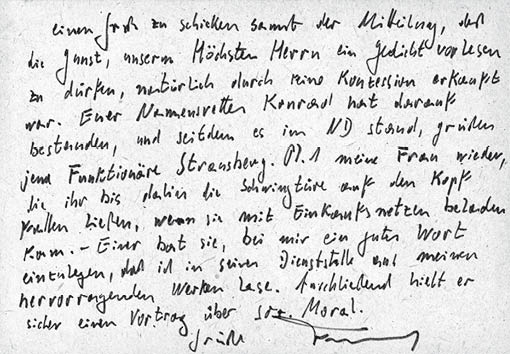 einen Gruß zu schicken samt der Mitteilung, daß
die Gunst, unserm Höchsten Herrn ein Gedicht vorlesen
zu dürfen, natürlich durch keine Konzession erkauft
war. Euer Namensvetter Konrad hat darauf
bestanden, und seitdem es im ND stand, grüßen
jene Funktionäre Strausberg. Pl. 1 meine Frau wieder,
die ihr bis dahin die Schwingtüre auf den Kopf
prallen ließen, wenn sie mit Einkaufsnetzen beladen
kam. – Einer bat sie, bei mir ein gutes Wort
einzulegen, daß ich in seiner Dienststelle aus meinen
hervorragenden Werken lase. Anschließend hielt er
sicher einen Vortrag über soz. Moral.
Grüße